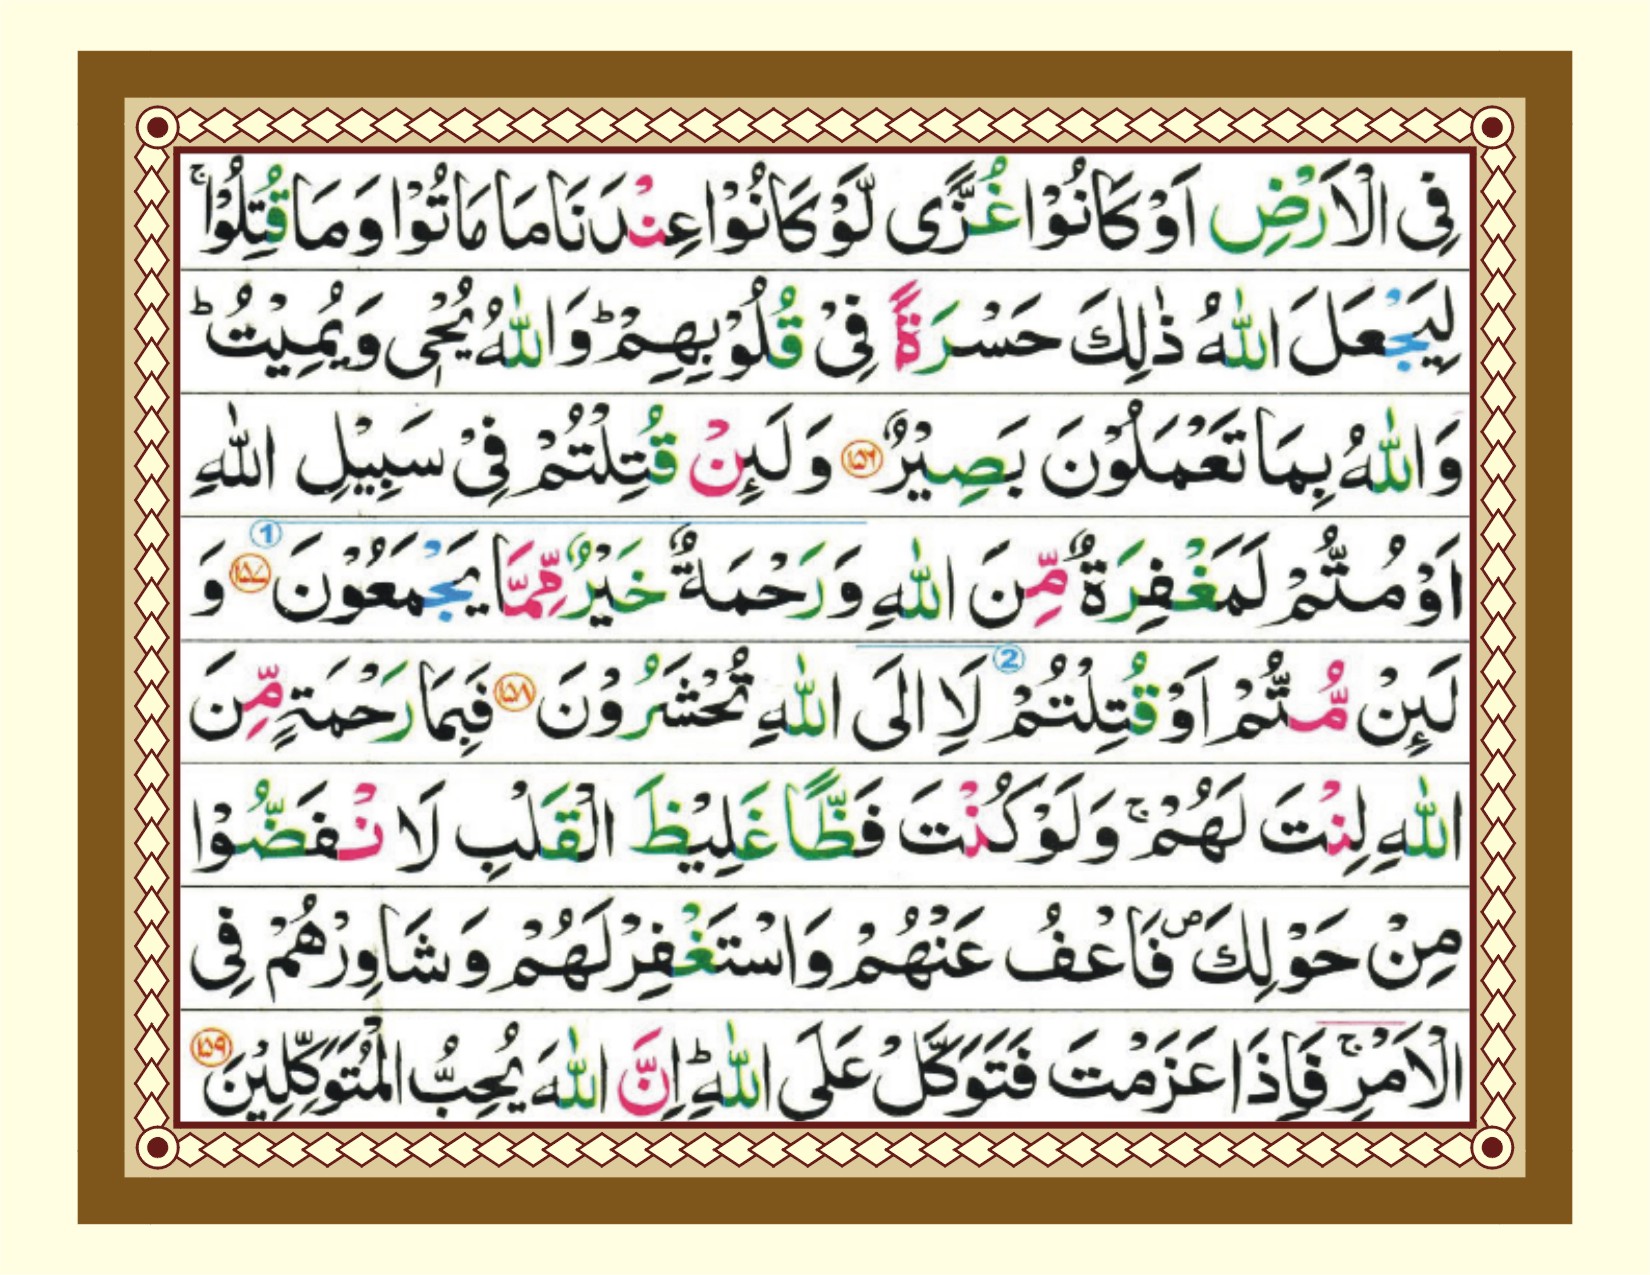 فِی الْاَرْضِ اَوْ كَانُوْا غُزًّی لَّوْ كَانُوْا عِنْدَنَا مَا مَاتُوْا وَ مَا قُتِلُوْا ۚ
لِیَجْعَلَ اللّٰهُ ذٰلِكَ حَسْرَةً فِیْ قُلُوْبِهِمْ ؕ وَ اللّٰهُ یُحْیٖ وَ یُمِیْتُ ؕ
وَ اللّٰهُ بِمَا تَعْمَلُوْنَ بَصِیْرٌ ۱۵۶ وَ لَىِٕنْ قُتِلْتُمْ فِیْ سَبِیْلِ اللّٰهِ
اَوْ مُتُّمْ لَمَغْفِرَةٌ مِّنَ اللّٰهِ وَ رَحْمَةٌ خَیْرٌ مِّمَّا یَجْمَعُوْنَ ① ۱۵۷ وَ
لَىِٕنْ مُّتُّمْ اَوْ قُتِلْتُمْ ② لَاۡاِلَی اللّٰهِ تُحْشَرُوْنَ ۱۵۸ فَبِمَا رَحْمَةٍ مِّنَ
اللّٰهِ لِنْتَ لَهُمْ ۚ وَ لَوْ كُنْتَ فَظًّا غَلِیْظَ الْقَلْبِ لَا نْفَضُّوْا
مِنْ حَوْلِكَ ۪ فَاعْفُ عَنْهُمْ وَ اسْتَغْفِرْ لَهُمْ وَ شَاوِرْهُمْ فِی
الْاَمْرِ ۚ فَاِذَا عَزَمْتَ فَتَوَكَّلْ عَلَی اللّٰهِ ؕ اِنَّ اللّٰهَ یُحِبُّ الْمُتَوَكِّلِیْنَ ۱۵۹